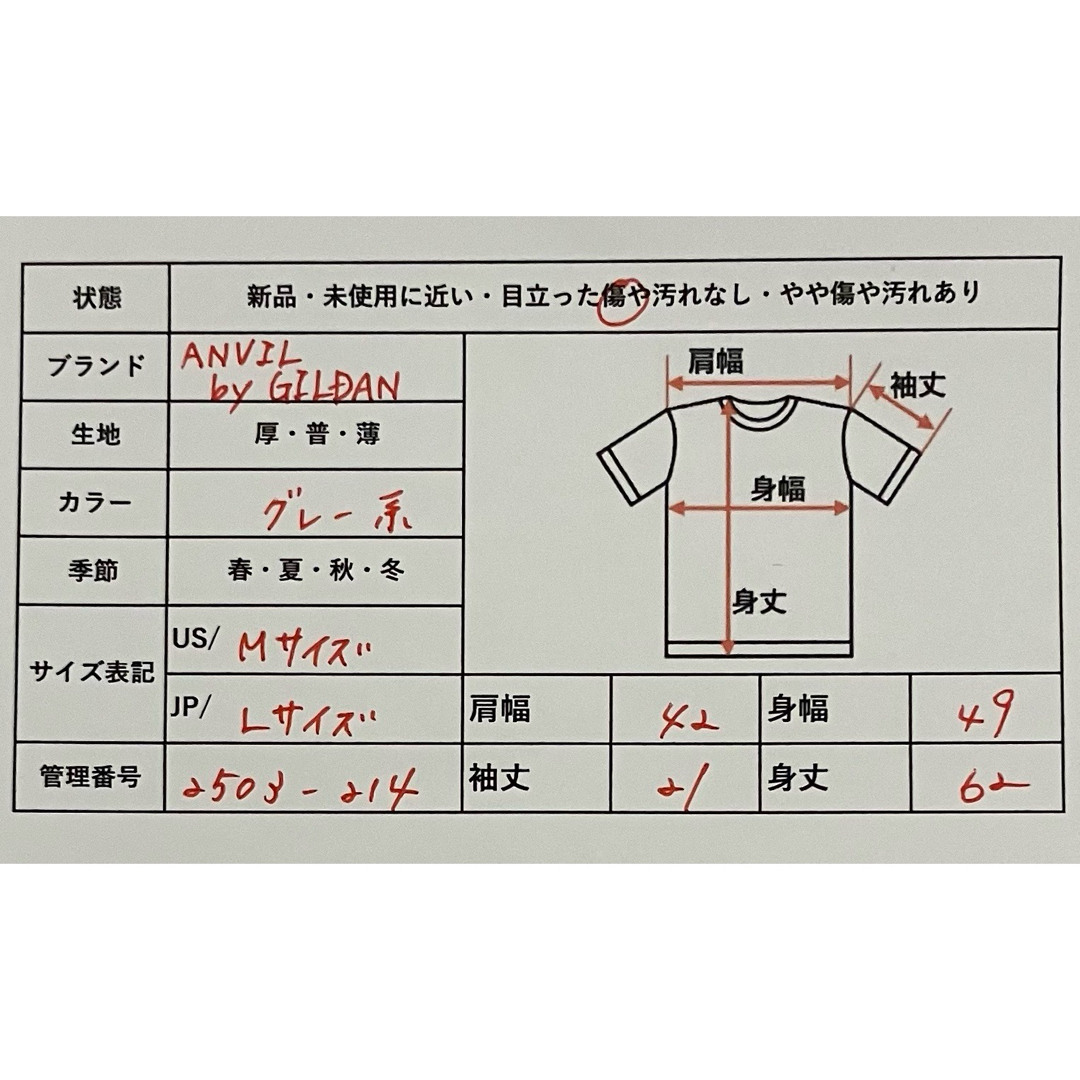 状態 新品・未使用に近い・目立った傷や汚れなし・やや傷や汚れあり
ブランド ANVIL
by GILDAN
生地 厚・普・薄
カラー グレー系
季節 春・夏・秋・冬
サイズ表記 US/ Mサイズ
JP/ Lサイズ
管理番号 2503-214
肩幅
袖丈
身幅
身丈
肩幅 42 身幅 49
袖丈 21 身丈 62